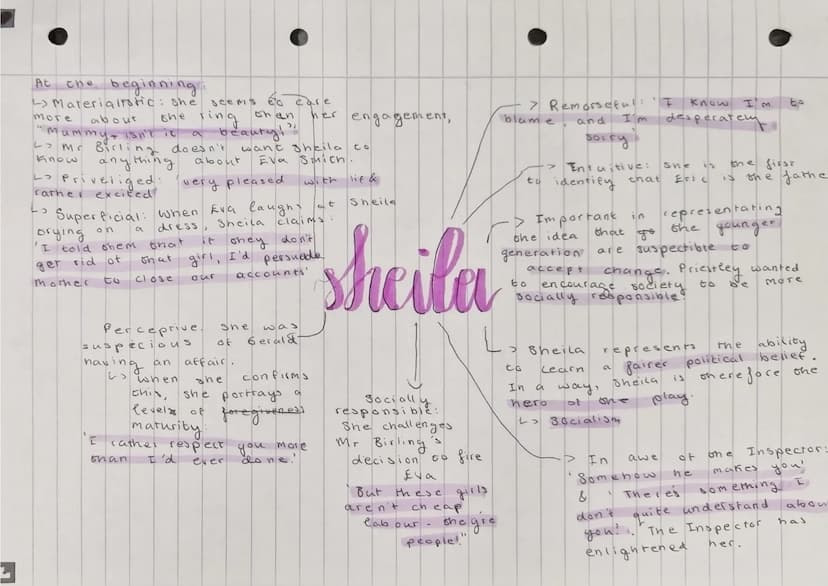 At the beginning:
↳ Materialistic: she seems to care
more about the ring than her engagement,
"Mummy, isn't it a beauty?"
↳ Mr Birling doesn't want Sheila to
know anything about Eva Smith.
↳ Priviliged: 'very pleased with life &
rather excited'
↳ Superficial: when Eva laughs at Sheila
trying on a dress, Sheila claims:
'I told them that if they don't
get rid of that girl, I'd persuade
mother to close our accounts'
Perceptive. She was
suspecious of Gerald
having an affair.
↳ When she confirms
this, she portrays a
level of foregiveness
maturity:
'I rather respect you more
than I'd ever done.'
sheila
Socially
responsible:
She challenges
Mr Birling's
decision to fire
Eva
'But these girls
aren't cheap
labour - they're
people!"
> Remorseful: 'I know I'm to
blame, and I'm desperately
sorry'
> Intuitive: she is the first
to identify that Eric is the fathe
> Important in representating
the idea that the younger
generation are suspectible to
accept change. Priestley wanted
to encourage society to be more
socially responsible!
> Sheila represents the ability
to learn a fairer political belief.
In a way, Sheila is therefore the
hero of the play.
↳ Socialism
> In awe of the Inspector:
'Somehow he makes you'
& 'There's something I
don't quite understand abou
you'. The Inspector has
enlightened her.